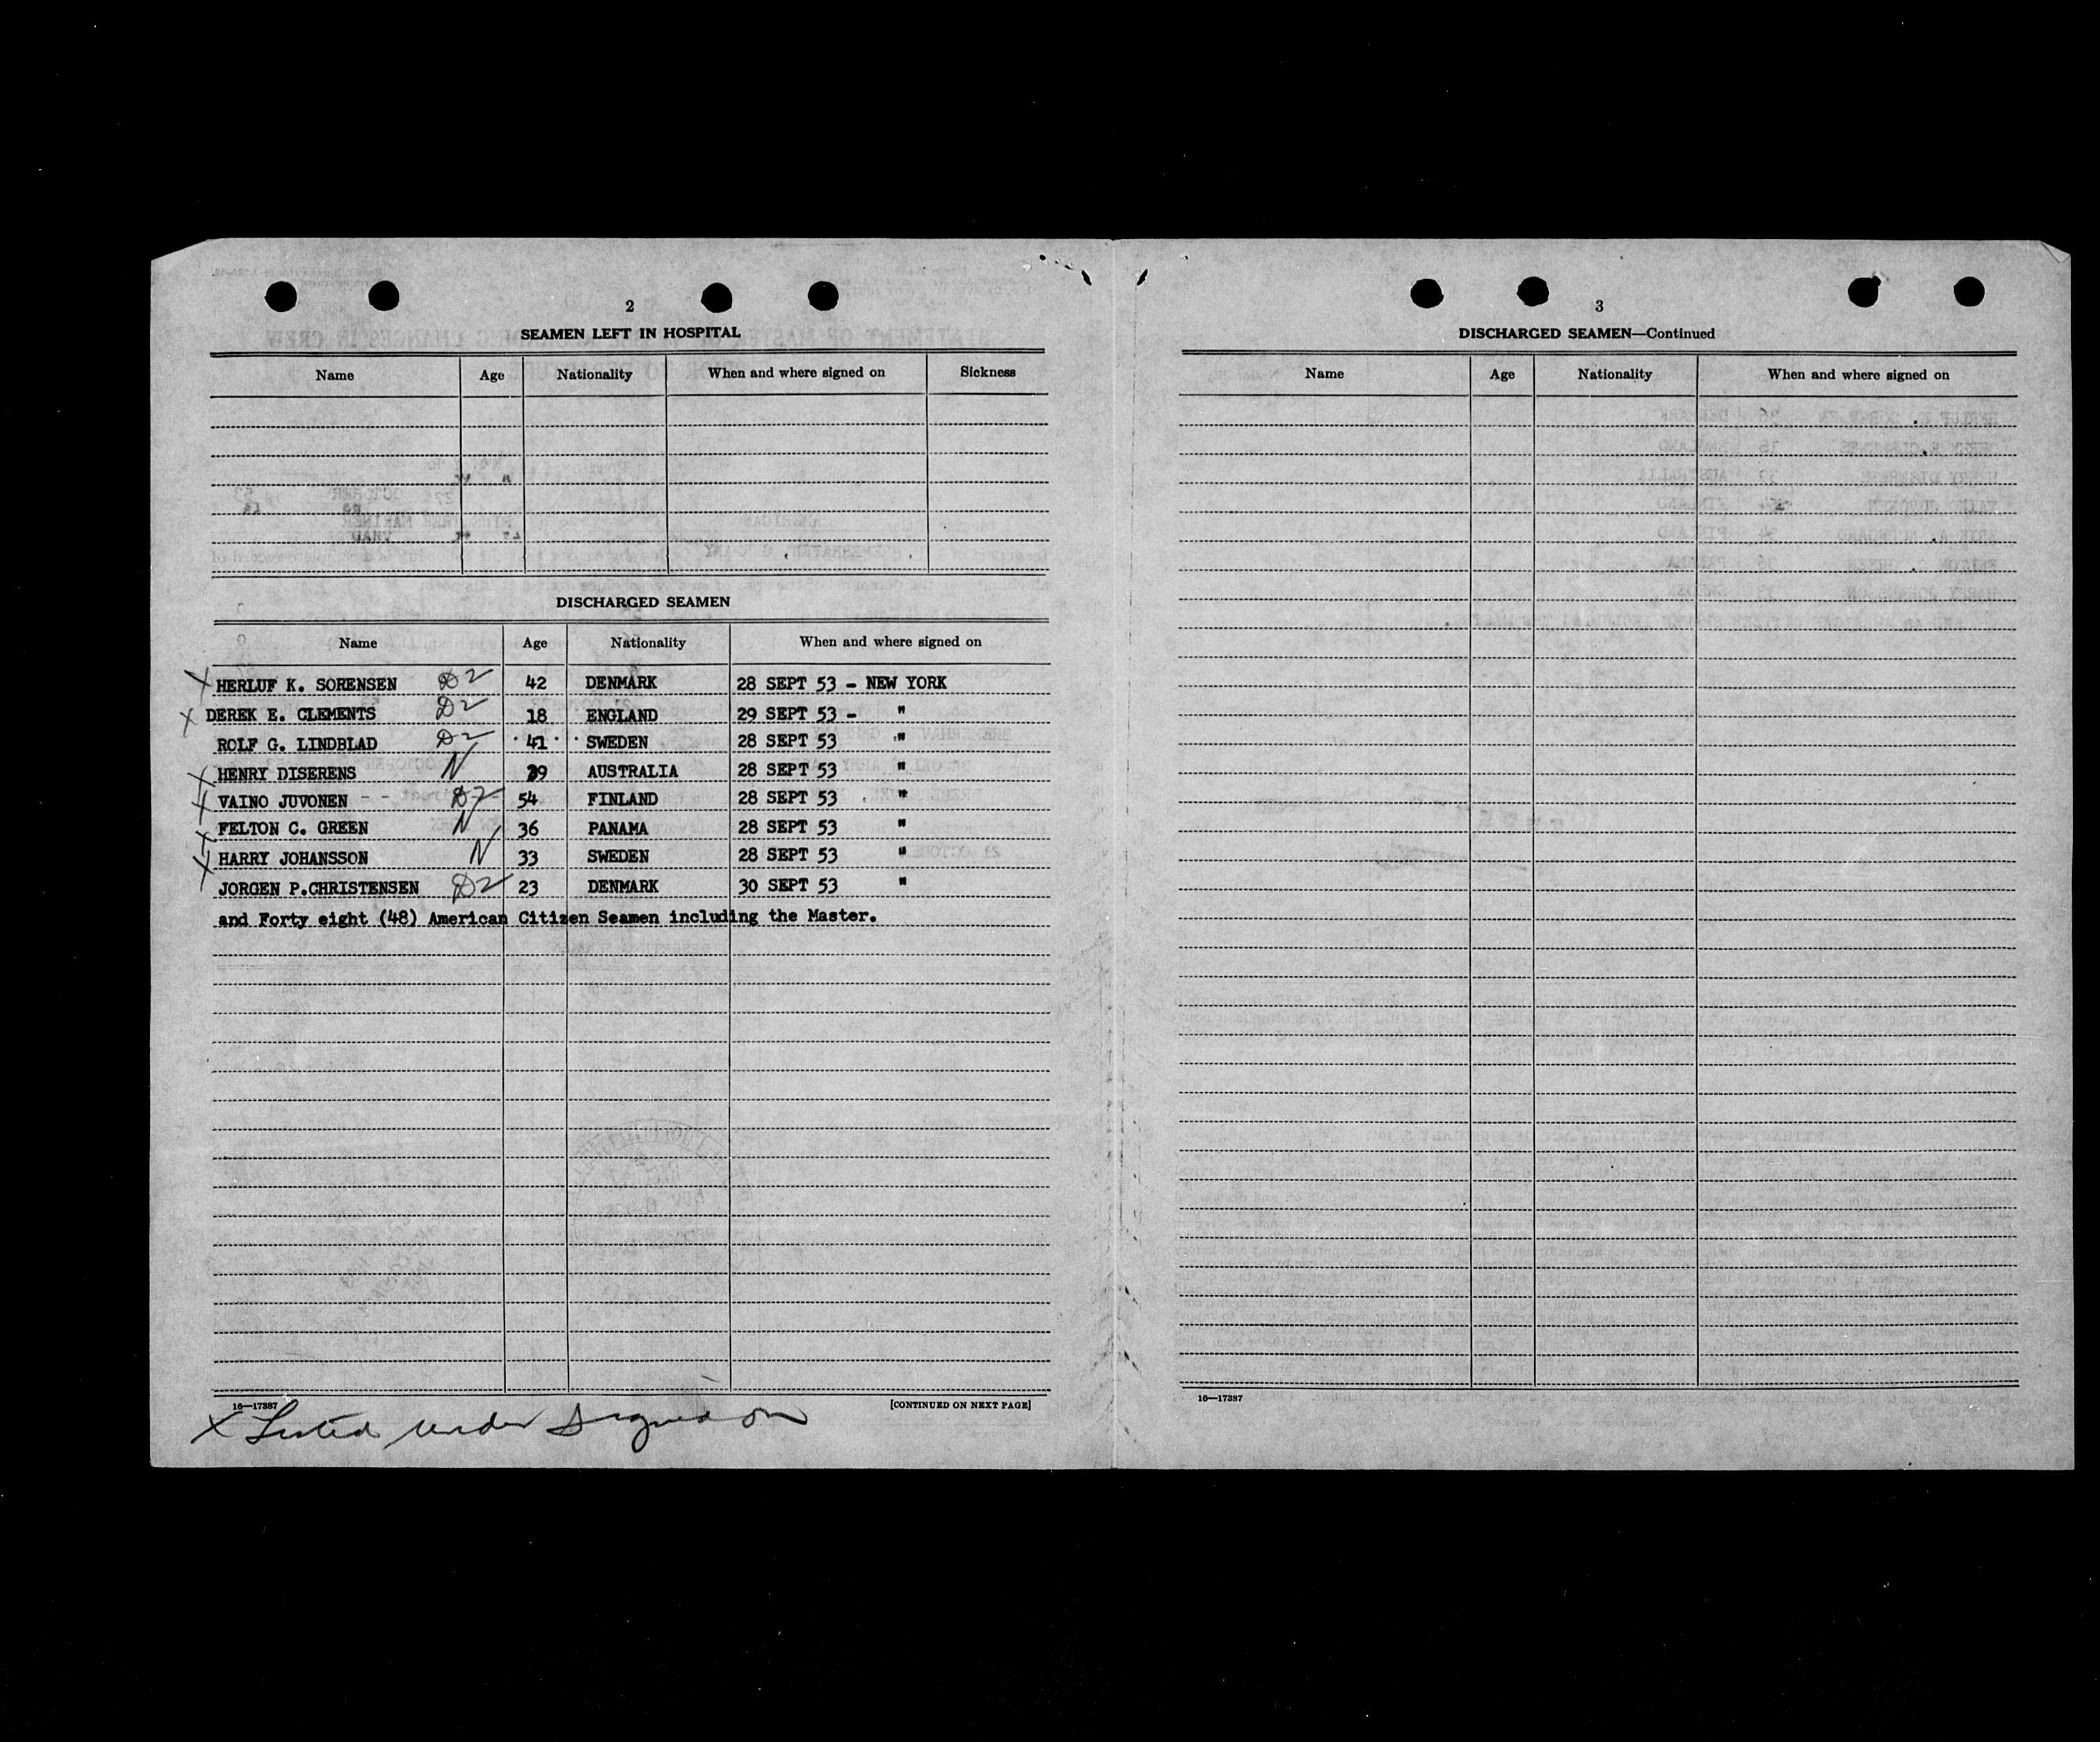 2
SEAMEN LEFT IN HOSPITAL
Name Age Nationality When and where signed on Sickness
DISCHARGED SEAMEN
Name Age Nationality When and where signed on
X HERLUF K. SORENSEN D2 42 DENMARK 28 SEPT 53 - NEW YORK
X DEREK E. CLEMENTS D2 18 ENGLAND 29 SEPT 53 - "
ROLF G. LINDBLAD D2 41 SWEDEN 28 SEPT 53 "
X HENRY DISERENS N 39 AUSTRALIA 28 SEPT 53 "
X VAINO JUVONEN - - D2 54 FINLAND 28 SEPT 53 "
X FELTON C. GREEN N 36 PANAMA 28 SEPT 53 "
X HARRY JOHANSSON N 33 SWEDEN 28 SEPT 53 "
JORGEN P.CHRISTENSEN D2 23 DENMARK 30 SEPT 53 "
and Forty eight (48) American Citizen Seamen including the Master.
16—17387 [CONTINUED ON NEXT PAGE]
X Listed under Signed on
3
DISCHARGED SEAMEN—Continued
Name Age Nationality When and where signed on
16—17387